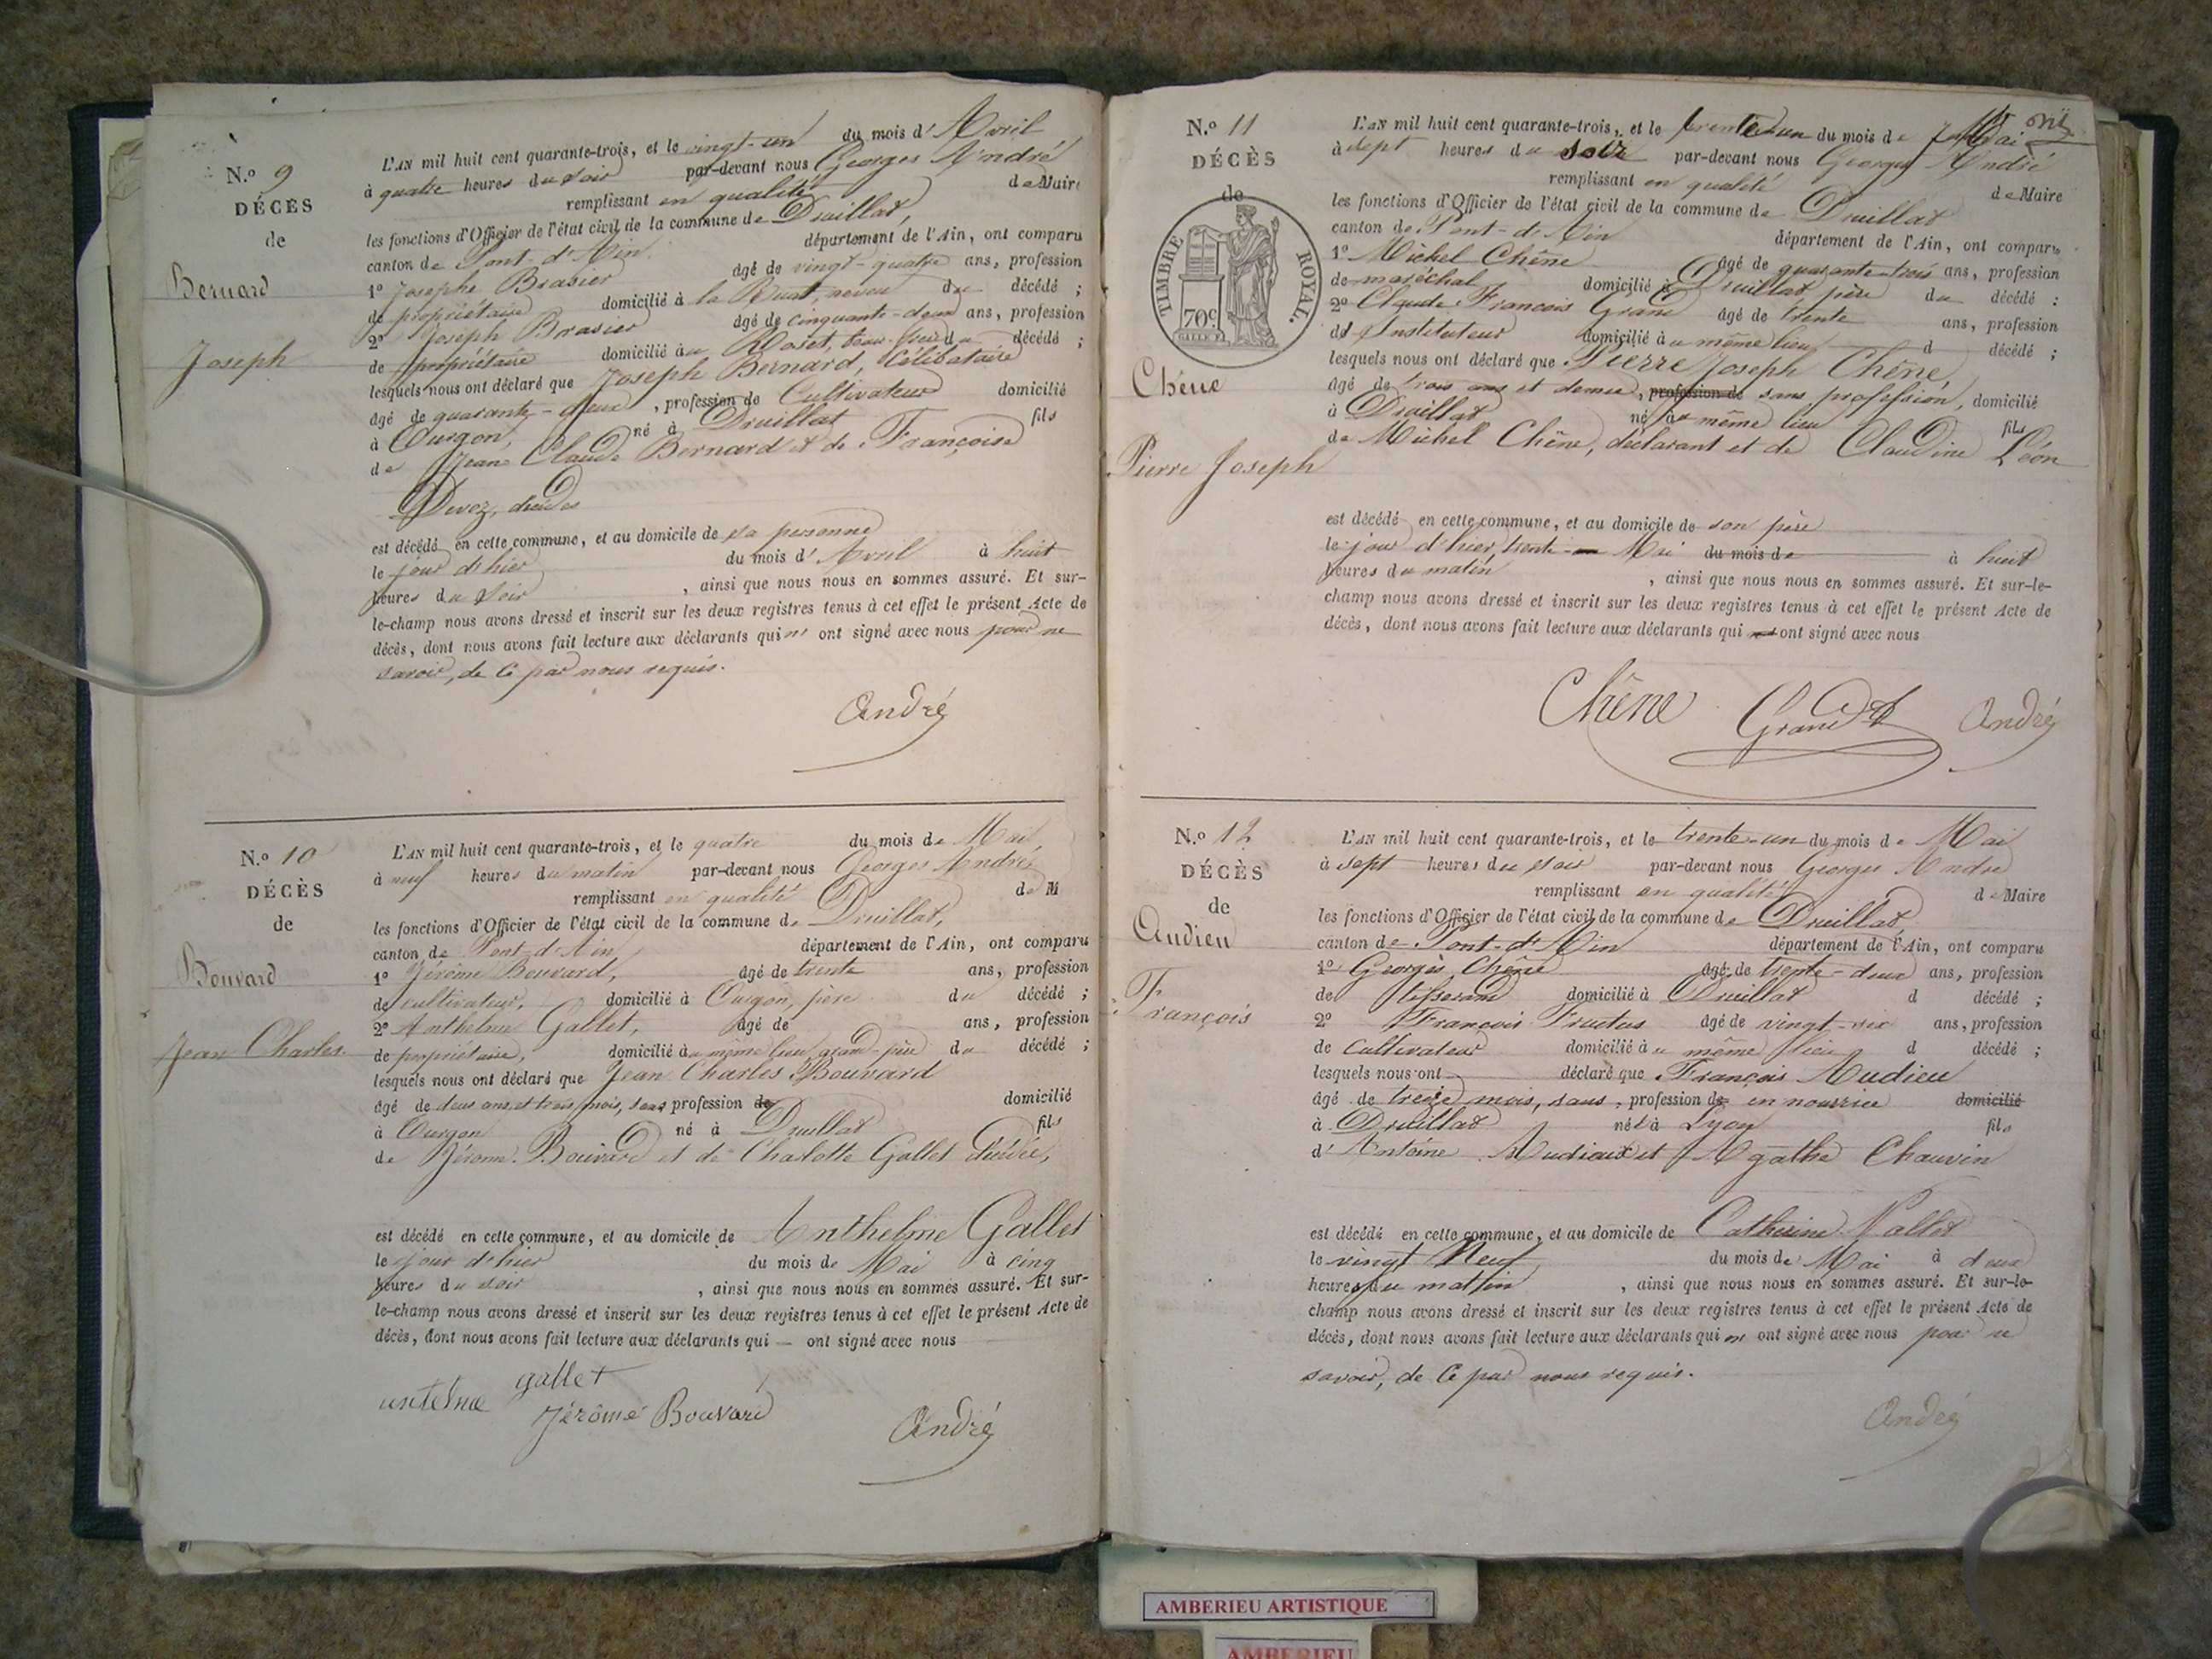 N.º 9
DÉCÈS
de
Bernard
Joseph
L'AN mil huit cent quarante-trois, et le vingt-un du mois d'Avril
à quatre heures du soir par-devant nous Georges André
remplissant en qualité de Maire
les fonctions d'Officier de l'état civil de la commune de Druillat,
canton de Pont-d'Ain département de l'Ain, ont comparu
1º Josephe Brasier âgé de vingt-quatre ans, profession
de propriétaire domicilié à la neveu du décédé ;
2º Joseph Brasier âgé de cinquante-deux ans, profession
de propriétaire domicilié au beau-frère du décédé ;
lesquels nous ont déclaré que Joseph Bernard, Célibataire
âgé de quarante-deux , profession de Cultivateur domicilié
à Ourgon, né à Druillat fils
de Jean Claude Bernard et de Françoise
décédés
est décédé en cette commune, et au domicile de sa personne
le jour d'hier du mois d'Avril à huit
heures du soir , ainsi que nous nous en sommes assuré. Et sur-
le-champ nous avons dressé et inscrit sur les deux registres tenus à cet effet le présent Acte de
décès, dont nous avons fait lecture aux déclarants qui n' ont signé avec nous pour ne
savoir, de ce par nous requis.
André
N.º 10
DÉCÈS
de
Bouvard
Jean Charles
L'AN mil huit cent quarante-trois, et le quatre du mois de Mai,
à neuf heures du matin par-devant nous Georges André
remplissant en qualité de M
les fonctions d'Officier de l'état civil de la commune de Druillat,
canton de Pont-d'Ain département de l'Ain, ont comparu
1º Jérôme Bouvard, âgé de trente ans, profession
de cultivateur, domicilié à Ourgon, père du décédé ;
2º Anthelme Gallet, âgé de ans, profession
de propriétaire, domicilié au même lieu, grand-père du décédé ;
lesquels nous ont déclaré que Jean Charles Bouvard
âgé de deux ans et trois mois, sans profession de domicilié
à Ourgon né à Druillat fils
de Jérome Bouvard et de Charlotte Gallet
est décédé en cette commune, et au domicile de Anthelme Gallet
le jour d'hier du mois de Mai à cinq
heures du soir , ainsi que nous nous en sommes assuré. Et sur-
le-champ nous avons dressé et inscrit sur les deux registres tenus à cet effet le présent Acte de
décès, dont nous avons fait lecture aux déclarants qui — ont signé avec nous
antelme gallet
Jérôme Bouvard
André
N.º 11
DÉCÈS
de
TIMBRE ROYAL.
70 c
Chêne
Pierre Joseph
L'AN mil huit cent quarante-trois, et le trente-un du mois de Mai
à sept heures du soir par-devant nous Georges André
remplissant en qualité de Maire
les fonctions d'Officier de l'état civil de la commune de Druillat
canton de Pont-d'Ain département de l'Ain, ont comparu
1º Michel Chêne âgé de quarante-trois ans, profession
de maréchal domicilié à Druillat père du décédé ;
2º Claude François Grand âgé de trente ans, profession
d'Instituteur domicilié au même lieu d décédé ;
lesquels nous ont déclaré que Pierre Joseph Chêne
âgé de trois ans et demie, profession de sans profession, domicilié
à Druillat né au même lieu fils
de Michel Chêne, déclarant et de Claudine Léon
est décédé en cette commune, et au domicile de son père
le jour d'hier, trente Mai du mois de à huit
heures du matin , ainsi que nous nous en sommes assuré. Et sur-le-
champ nous avons dressé et inscrit sur les deux registres tenus à cet effet le présent Acte de
décès, dont nous avons fait lecture aux déclarants qui ont signé avec nous
Chêne Grand André
N.º 12
DÉCÈS
de
Audieu
François
L'AN mil huit cent quarante-trois, et le trente-un du mois de Mai
à sept heures du soir par-devant nous Georges André
remplissant en qualité de Maire
les fonctions d'Officier de l'état civil de la commune de Druillat,
canton de Pont-d'Ain département de l'Ain, ont comparu
1º Georges Chêne âgé de trente-deux ans, profession
de tisserand domicilié à Druillat d décédé ;
2º François Fructus âgé de vingt-six ans, profession
de Cultivateur domicilié au même lieu d décédé ;
lesquels nous ont déclaré que François Audieu
âgé de treize mois, sans, profession de en nourrice domicilié
à Druillat né à Lyon fils
d'Antoine et Agathe Chauvin
est décédé en cette commune, et au domicile de Catherine
le vingt Neuf du mois de Mai à deux
heures du matin , ainsi que nous nous en sommes assuré. Et sur-le-
champ nous avons dressé et inscrit sur les deux registres tenus à cet effet le présent Acte de
décès, dont nous avons fait lecture aux déclarants qui n' ont signé avec nous pour ne
savoir, de ce par nous requis.
André
AMBERIEU ARTISTIQUE
AMBERIEU